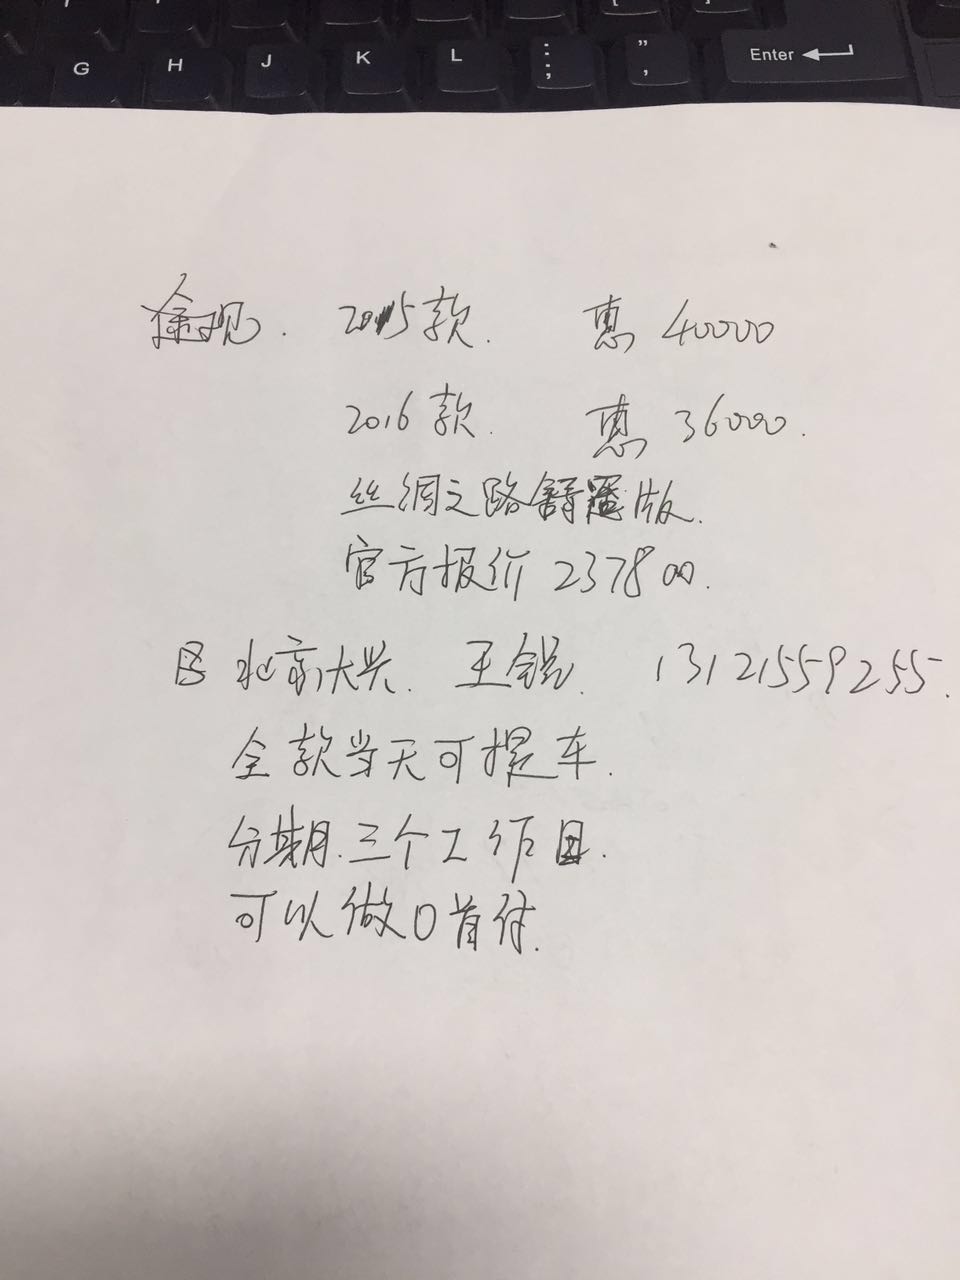 G H J K L : ; " , Enter
途观. 2015款. 惠 40000
2016款. 惠 36000.
丝绸之路舒适版.
官方报价 237800.
北京大兴. 王锐. 13121559255.
全款当天可提车.
分期.三个工作日.
可以做0首付.